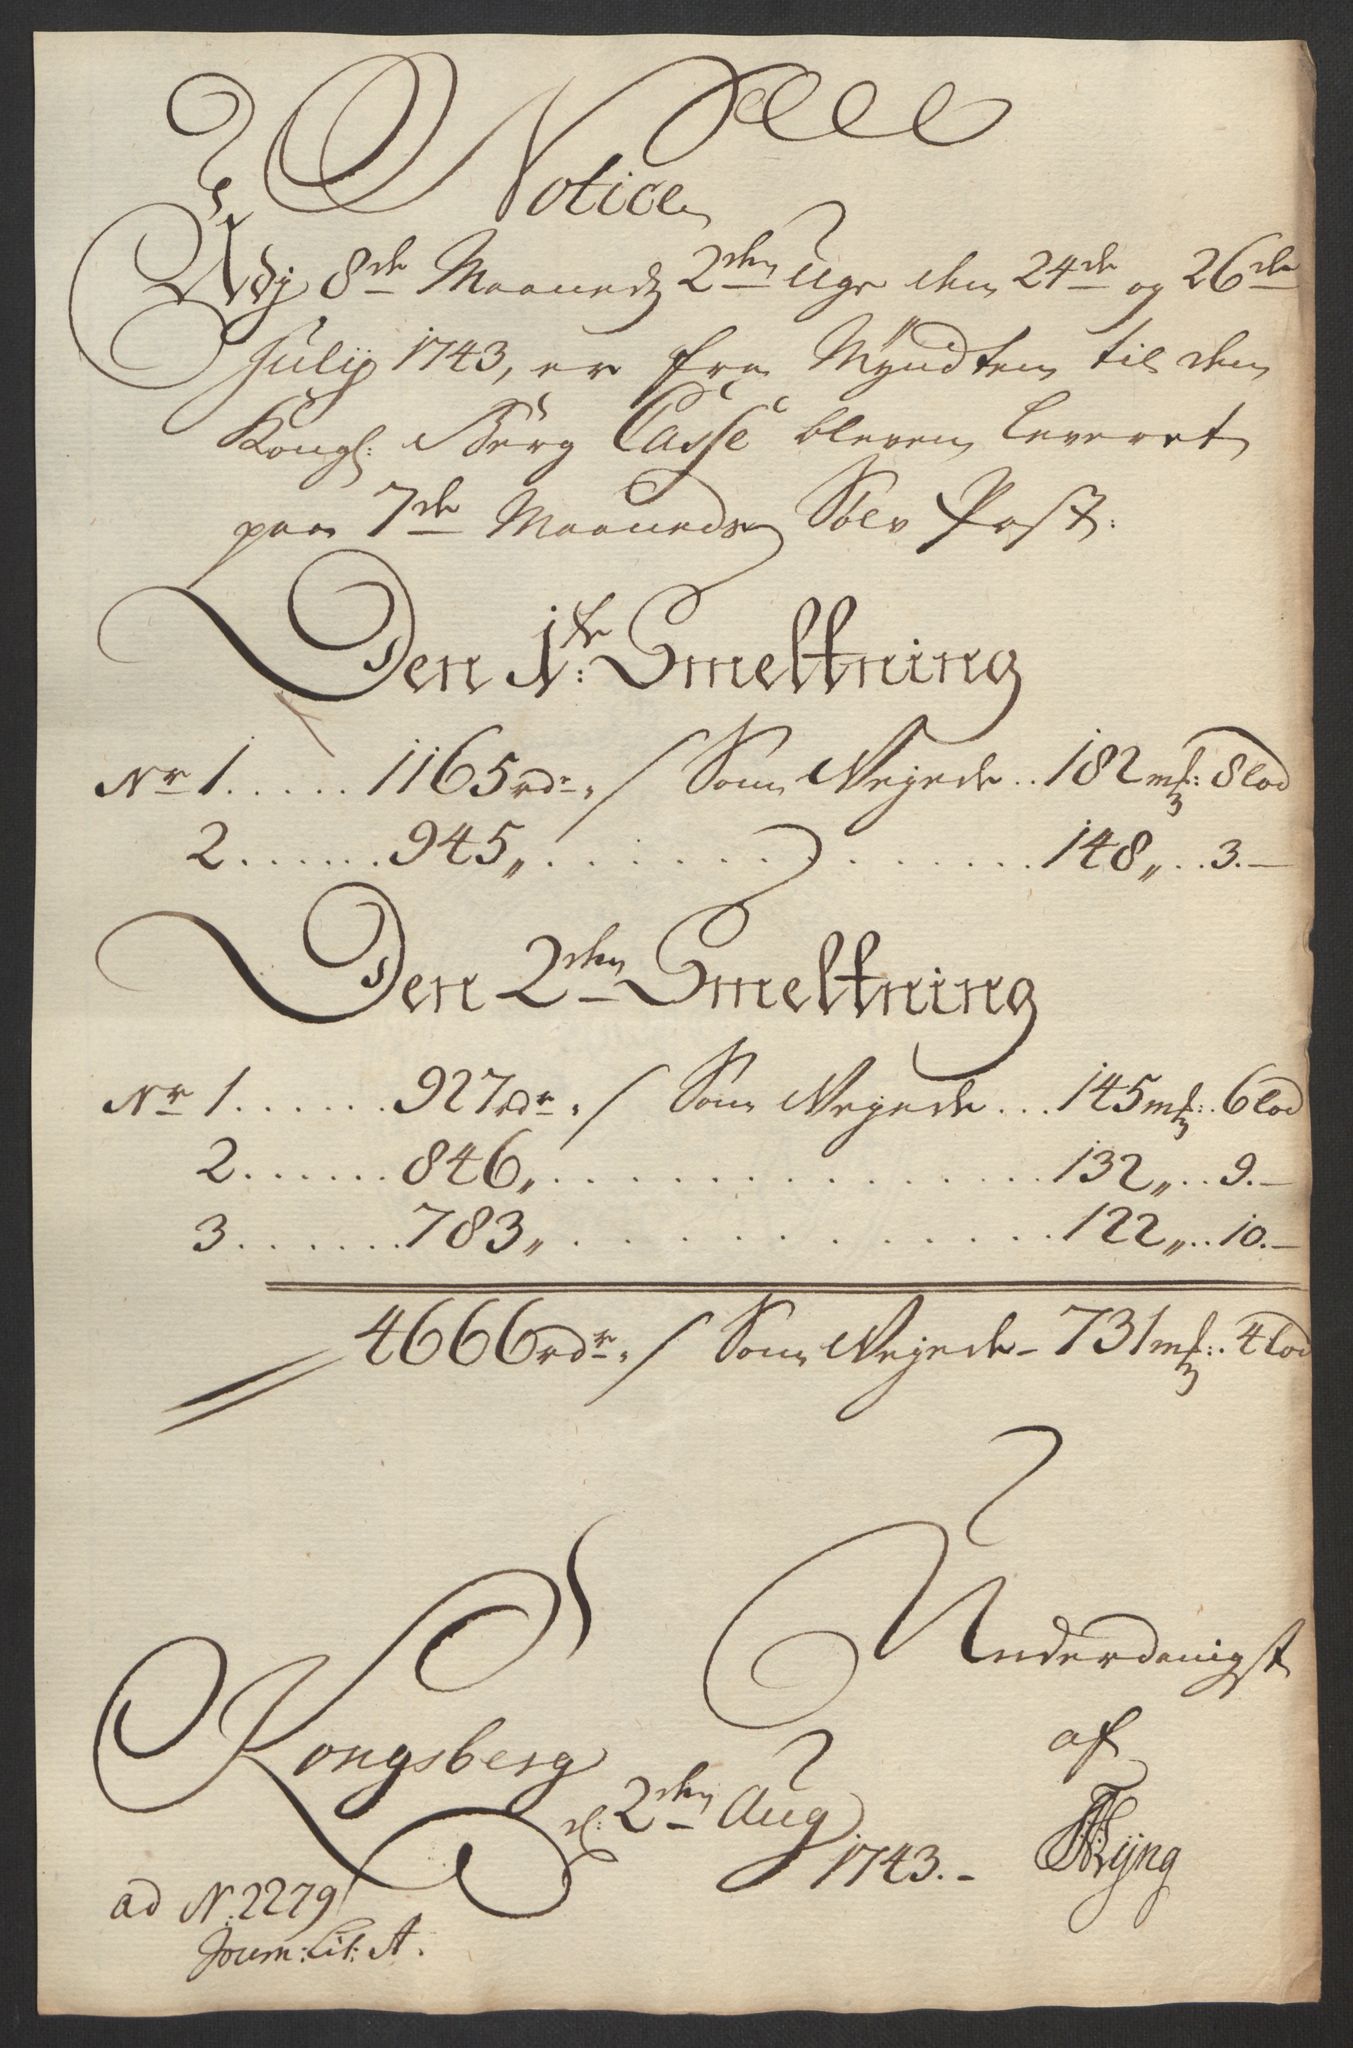 Notice
Udj 8de Maaneds 2den Uge den 24de og 26de
Julij 1743, er fra Myndten til den
Kongl: Berg Casse bleven leveret
paa 7de Maaneds Sølv Post:
Den 1te: Smeltning
Nr 1..... 1165 rdr. / Som Vejede .. 182 mk: 8 lod
2...... 945 „ . . . . . . . . . . 148 „ .. 3. —
Den 2den Smeltning
Nr 1...... 927 rdr. / Som Vejede ... 145 mk: . 6 lod
2...... 846 „ . . . . . . . . . . 132 „ .. 9. —
3....... 783 „ . . . . . . . . . . 122 „ .. 10. —
4666 rdr. / Som Vejede - 731 mk: . 4 lod
Underdanigst
af
Kongsberg
d: 2den Aug
1743. -
ad N: 2279
Journ: Lit: A.